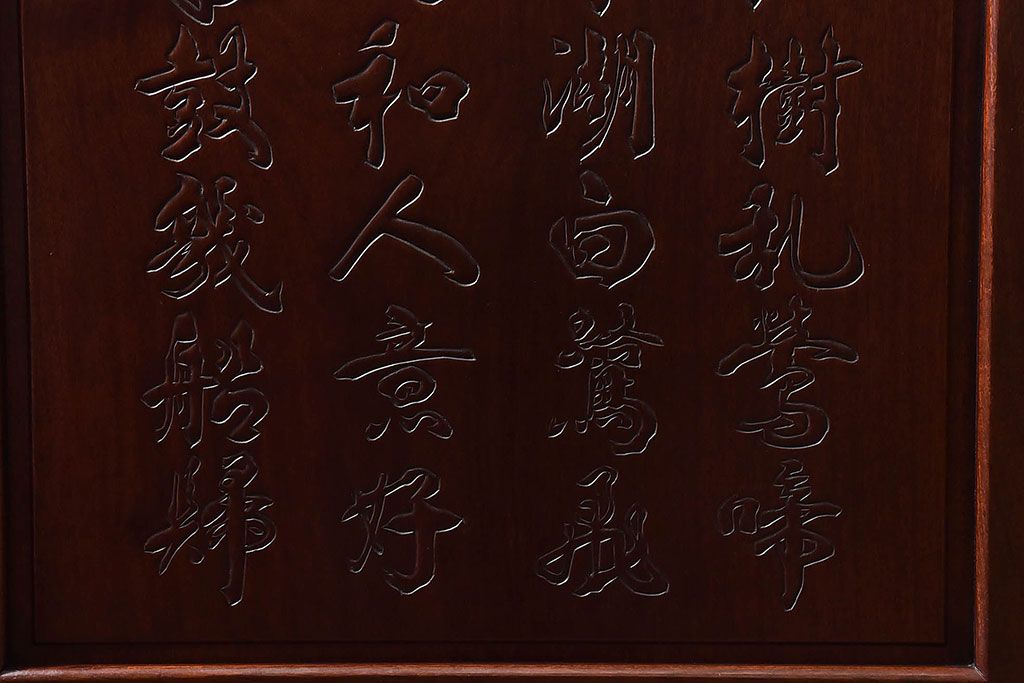 樹乱鶯啼
湖白鷺飛
和人意好
鼓幾船歸